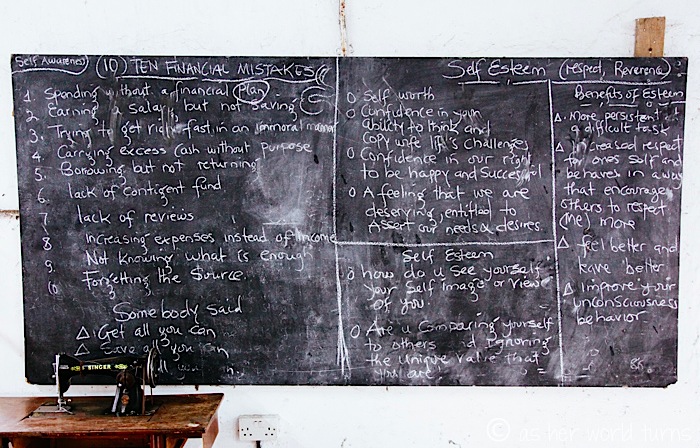 Self Awareness
(10) TEN FINANCIAL MISTAKES
1. Spending without a financial Plan
2. Earning a salary but not saving
3. Trying to get rich fast in an immoral manner
4. Carrying excess cash without purpose
5. Borrowing but not returning
6. lack of contigent fund.
7 lack of reviews
8 Increasing expenses instead of Income
9. Not knowing what is enough
10. Forgetting the Source.
Somebody said
Δ: Get all you can
Δ Save all you can
all you
Self Esteem (respect, Reverence)
O Self worth
O Confidence in your
ability to think and
Copy wife life's challenges
O Confidence in our right
to be happy and successful
O A feeling that we are
deserving, entitled to
Assert our needs & desires.
Self Esteem
O how do u see yourself
your self image or view
of you.
O Are u comparing yourself
to others and ignoring
the unique value that
you are
Benefits of Esteem
Δ. More persistent
a difficult task
Δ Increased respect
for ones self and
behaves in a way
that encourages
others to respect
(me) more
Δ feel better and
have better
Δ Improve your
unconsciousness
behavior
SINGER
© as her world turns